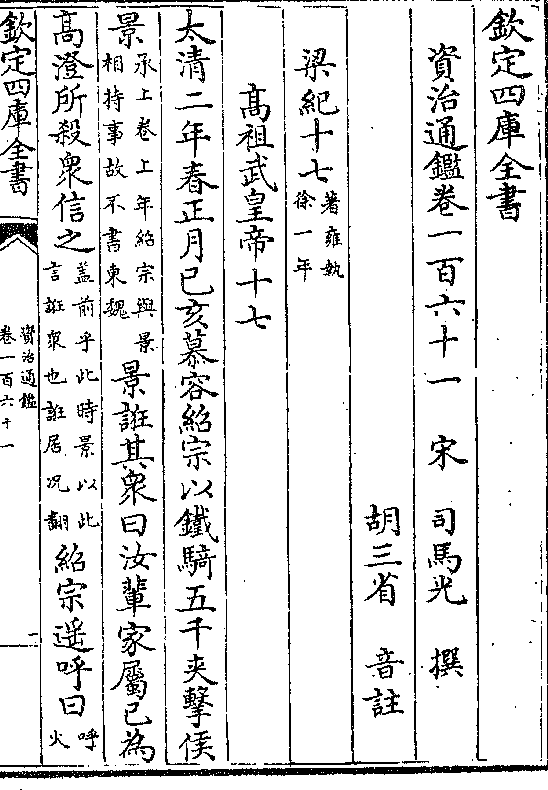 欽定四庫全書
資治通鑑卷一百六十一　宋　司馬光　撰
胡三省　音註
梁紀十七著雍執徐一年
高祖武皇帝十七
太清二年春正月己亥慕容紹宗以鐵騎五千夾擊侯
景承上卷上年紹宗與景相持事故不書東魏景誑其衆曰汝輩家屬已為
高澄所殺衆信之盖前乎此時景以此言誑衆也誑居况翻紹宗遥呼曰呼火
欽定四庫全書
資治通鑑
卷一百六十一
一